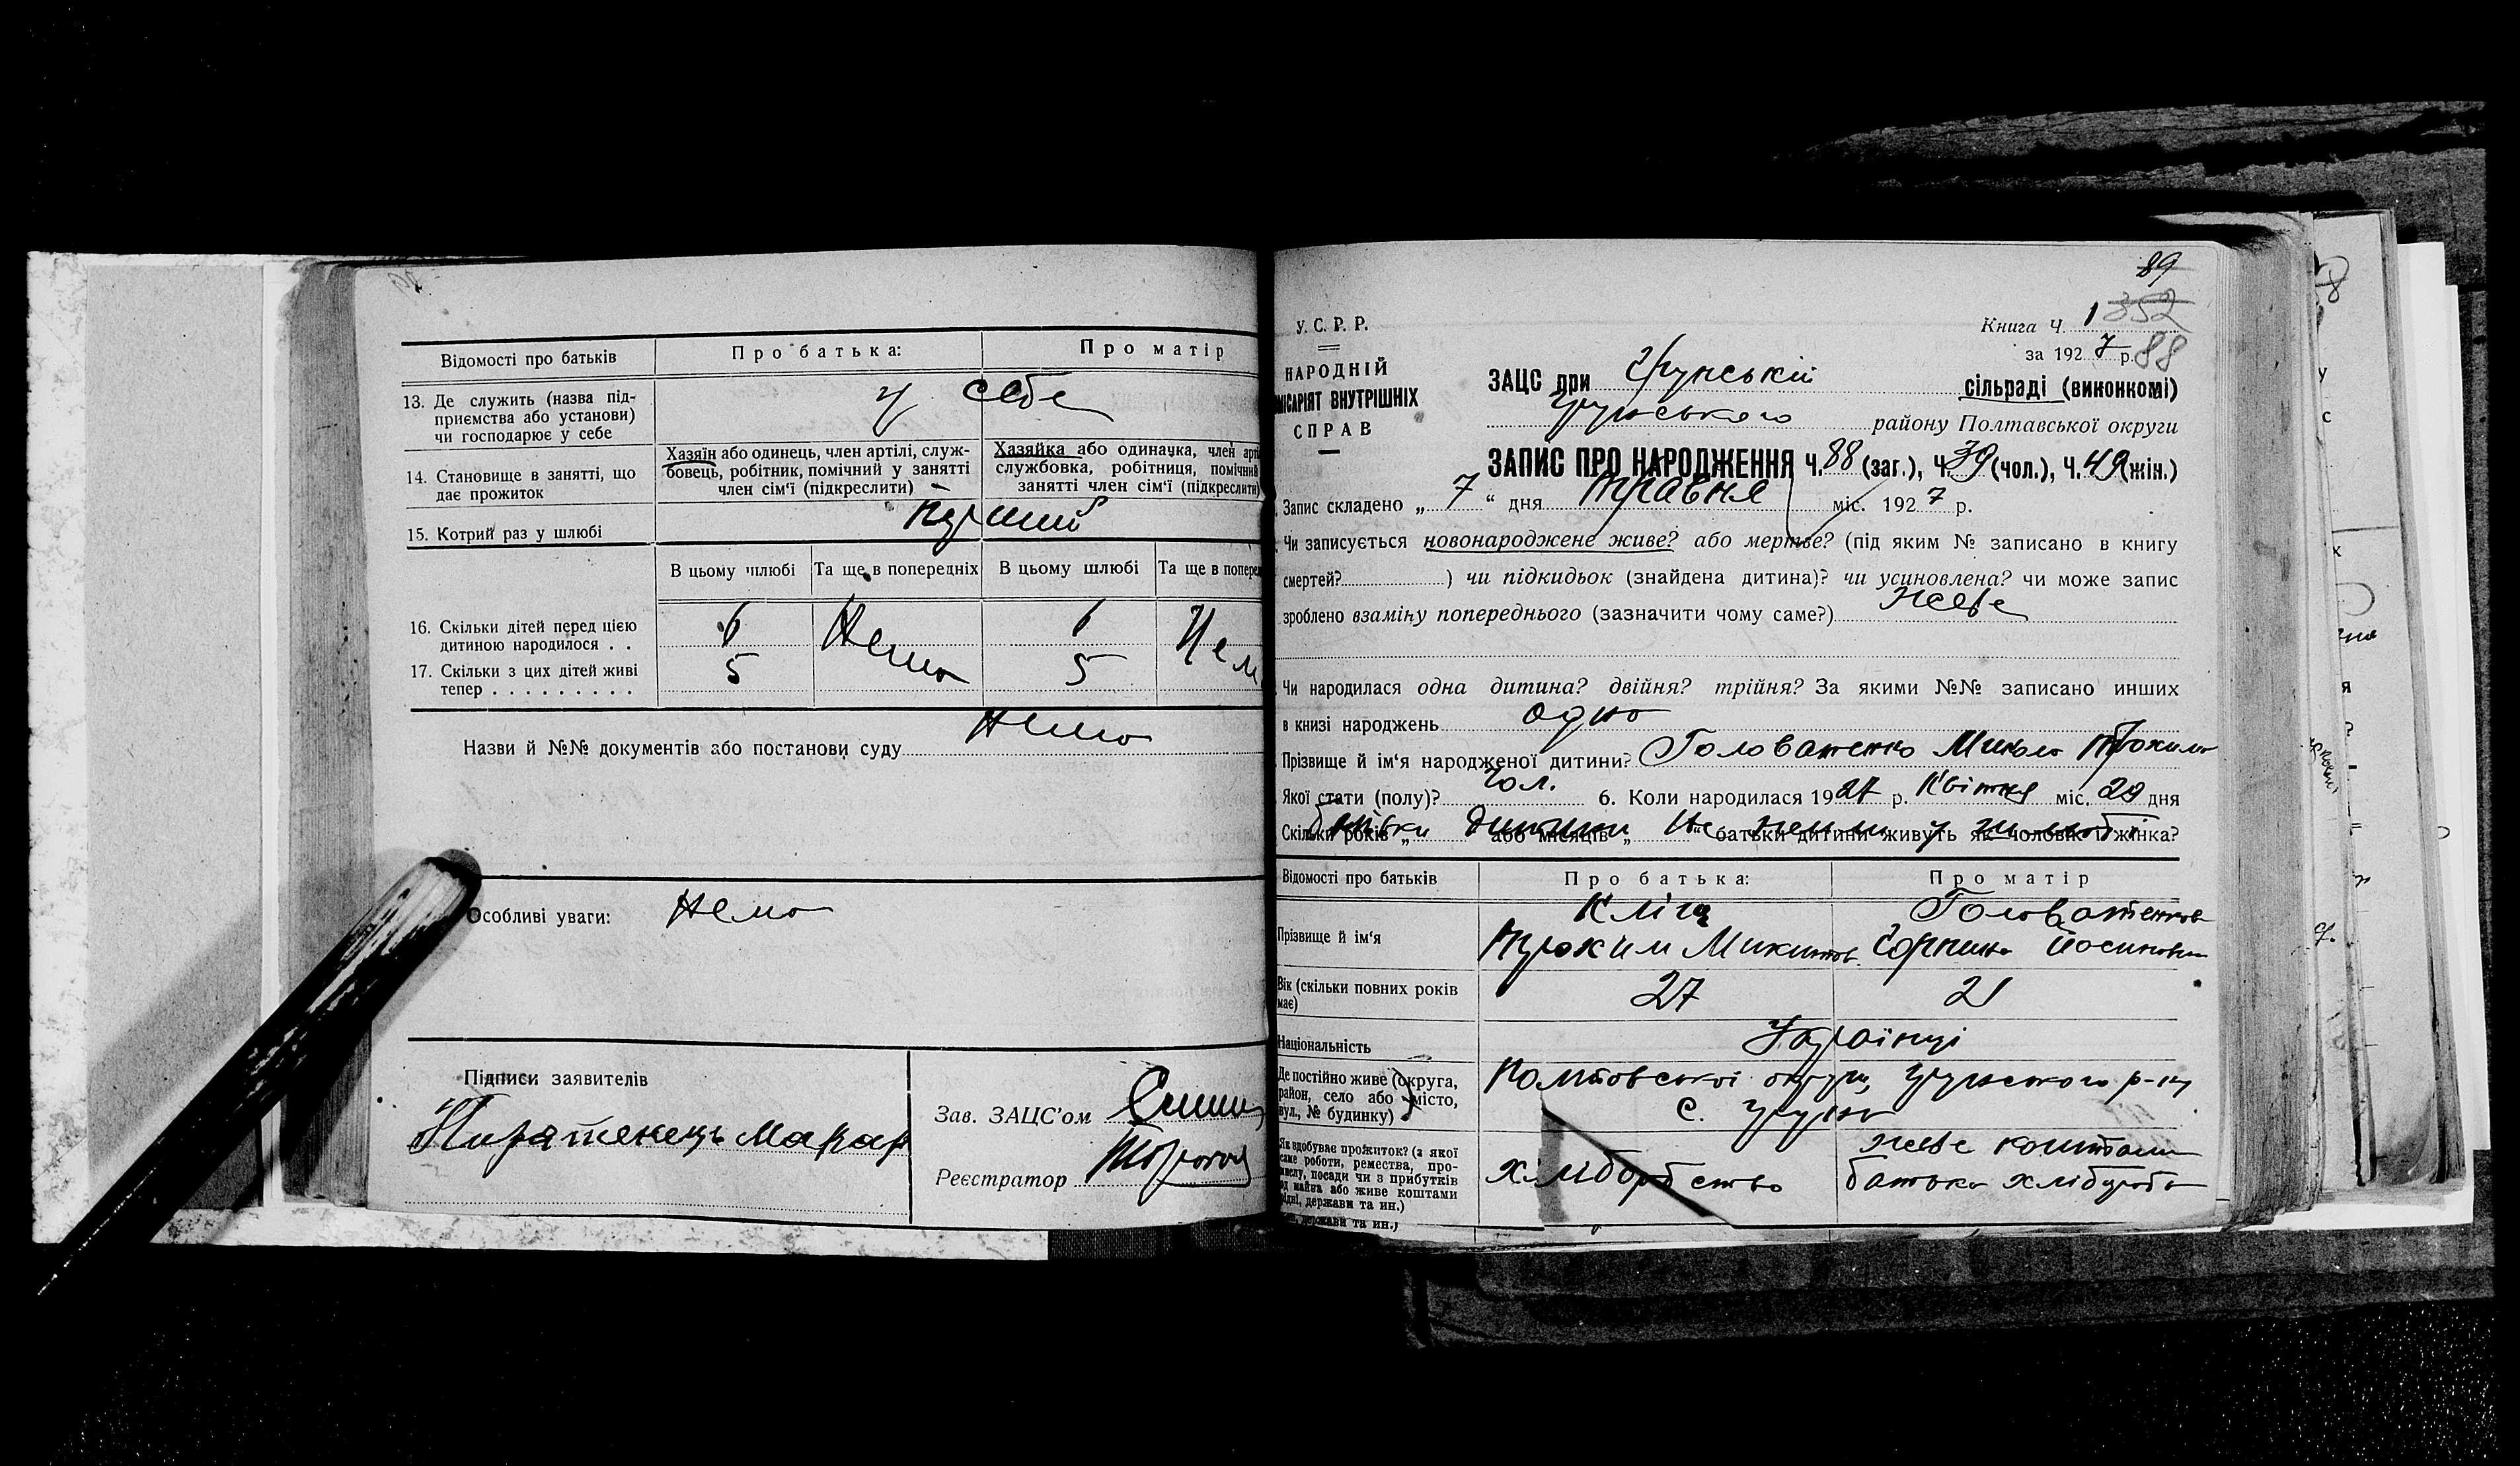 Відомості про батьків
Про батька:
Про матір
13. Де служить (назва під-
приємства або установи)
чи господарює у себе
у себе
14. Становище в занятті, що
дає прожиток
Хазяїн або одинець, член артілі, служ-
бовець, робітник, помічний у занятті
член сім'ї (підкреслити)
Хазяйка або одиначка, член арті
службовка, робітниця, помічний
занятті член сім'ї (підкреслити)
15. Котрий раз у шлюбі
Перший
В цьому шлюбі
Та ще в попередніх
В цьому шлюбі
Та ще в поперед
16. Скільки дітей перед цією
дитиною народилося . .
6 Нема 6 Нем
17. Скільки з цих дітей живі
тепер . . . . . . . . .
5 5
Назви й №№ документів або постанови суду Нема
Особливі уваги: Нема
Підписи заявителів
Пирятенець Макар
Зав. ЗАЦС'ом
Реєстратор
89
352
88
У. С. Р. Р.
НАРОДНІЙ
МІСАРІЯТ ВНУТРІШНІХ
СПРАВ
Книга Ч. 1
за 1927 р.
ЗАЦС при сільраді (виконкомі)
району Полтавської округи
ЗАПИС ПРО НАРОДЖЕННЯ Ч. 88 (заг.), Ч. 39 (чол.), Ч. 49 (жін.)
Запис складено „ 7 “ дня травня міс. 1927 р.
Чи записується новонароджене живе? або мертве? (під яким № записано в книгу
смертей? ) чи підкидьок (знайдена дитина)? чи усиновлена? чи може запис
зроблено взаміну попереднього (зазначити чому саме?) живе
Чи народилася одна дитина? двійня? трійня? За якими №№ записано инших
в книзі народжень одно
Прізвище й ім'я народженої дитини? Головатенко Микола Трохим
Якої стати (полу)? чол. 6. Коли народилася 1927 р. Квітня міс. 29 дня
Скільки років „ або місяців „ “ батьки дитини живуть як чоловік і жінка?
батьки дитини не жили у
Відомості про батьків
Про батька:
Про матір
Прізвище й ім'я
Трохим Микитов.
Головатенкова
Йосиповна
Вік (скільки повних років
має)
27
21
Національність
Українці
Де постійно живе (округа,
район, село або місто,
вул., № будинку)
Полтавської округи, р-ну
с.
Як здобуває прожиток? (з якої
саме роботи, ремества, про-
мислу, посади чи з прибутків
од майна або живе коштами
рідні, держави та ин.)
хліборобство
живе коштами
батька хлібороба
держави та ин.)